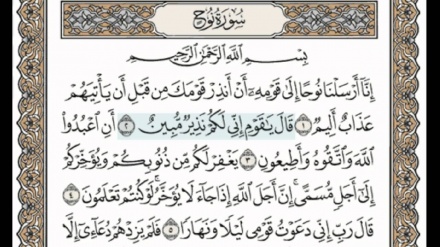 سُورَةُ نُوحٍ
بِسْمِ اللَّهِ الرَّحْمَٰنِ الرَّحِيمِ
إِنَّا أَرْسَلْنَا نُوحًا إِلَىٰ قَوْمِهِ أَنْ أَنذِرْ قَوْمَكَ مِن قَبْلِ أَن يَأْتِيَهُمْ
عَذَابٌ أَلِيمٌ ١ قَالَ يَٰقَوْمِ إِنِّي لَكُمْ نَذِيرٌ مُّبِينٌ ٢ أَنِ اعْبُدُوا
اللَّهَ وَاتَّقُوهُ وَأَطِيعُونِ ٣ يَغْفِرْ لَكُم مِّن ذُنُوبِكُمْ وَيُؤَخِّرْكُمْ
إِلَىٰ أَجَلٍ مُّسَمًّى إِنَّ أَجَلَ اللَّهِ إِذَا جَاءَ لَا يُؤَخَّرُ لَوْ كُنتُمْ تَعْلَمُونَ ٤
قَالَ رَبِّ إِنِّي دَعَوْتُ قَوْمِي لَيْلًا وَنَهَارًا ٥ فَلَمْ يَزِدْهُمْ دُعَاءِي إِلَّا